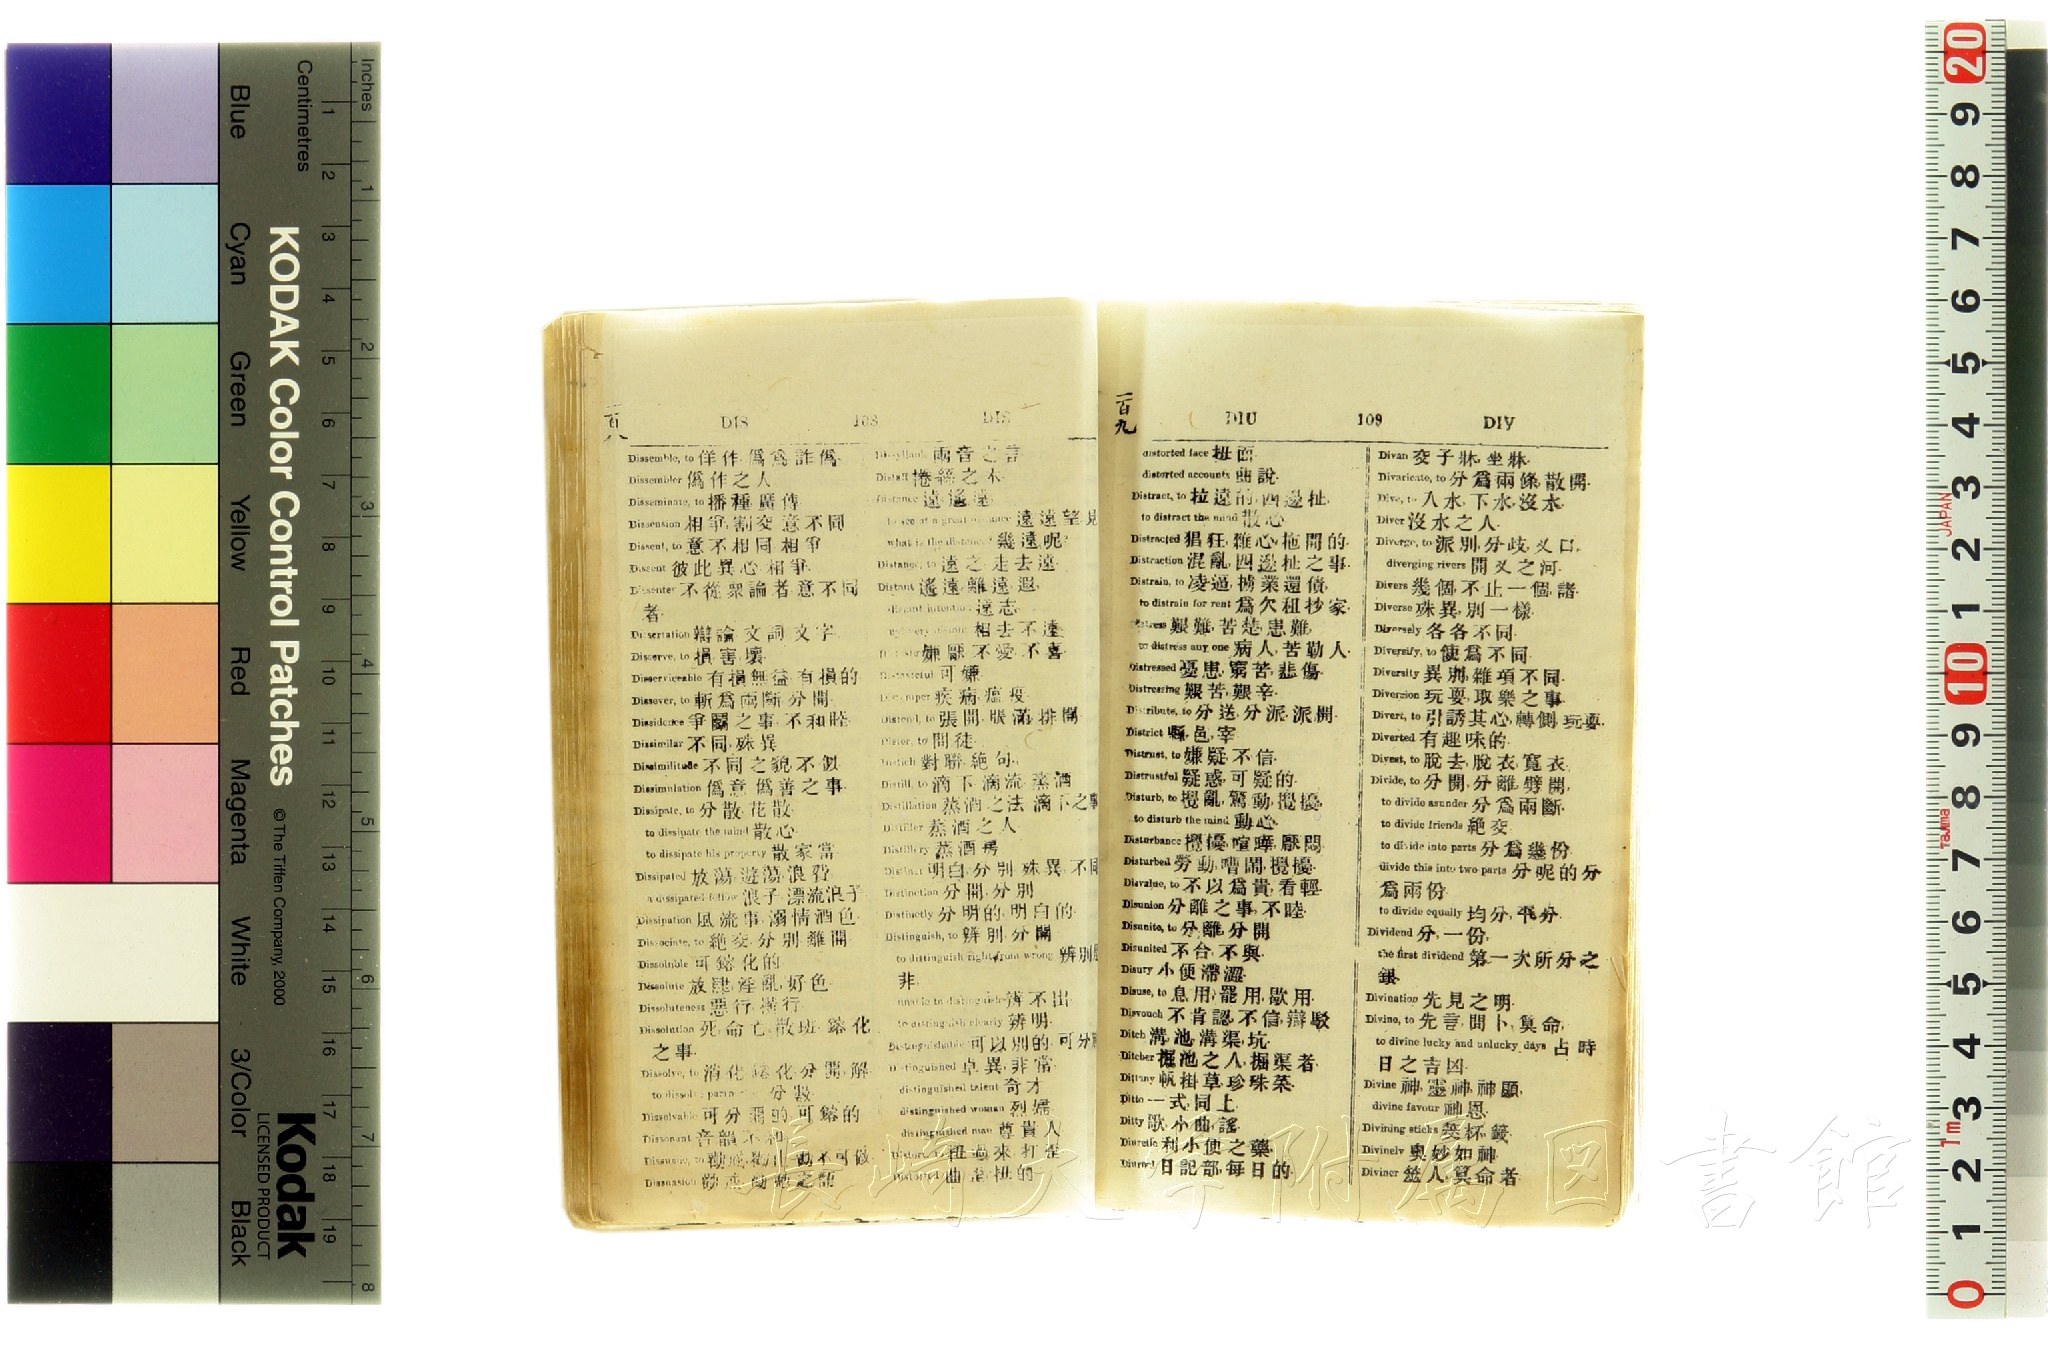 一百八
DIS 108 DIS
Dissemble, to 佯作僞爲詐僞.
Dissembler 僞作之人
Disseminate, to 播種廣傳
Dissension 相爭,割交意不同
Dissent, to 意不相同相爭
Dissent 彼此異心,相爭.
Dissenter 不從衆論者意不同
者
Dissertation 辯論文詞文字.
Disserve, to 損害壞
Disserviceable 有損無益有損的
Dissever, to 斬爲兩斷分開
Dissidence 爭鬭之事不和睦
Dissimilar 不同殊異
Dissimilitude 不同之貌不似
Dissimulation 僞意僞善之事
Dissipate, to 分散花散
to dissipate the mind 散心
to dissipate his property 散家當
Dissipated 放蕩遊蕩浪
a dissipated fellow 浪子漂流浪子
Dissipation 風流事溺情酒色
Dissociate, to 絶交分別離開
Dissoluble 可鎔化的
Dissolute 放肆淫亂好色
Dissoluteness 惡行
Dissolution 死命亡散班鎔化
之事.
Dissolve, to 消化鎔化分開,解
Dissolvable 可分開的可鎔的
Dissonant 音韻不和
Dissuasion
Dissyllable 兩音之言
Distaff 捲絲之木
Distance 遠遙遠
to see at a great distance 遠遠望見
what is the distance? 幾遠呢?
Distance, to 遠之走去遠
Distant 遙遠離遠遐
distant intention 遠志
相去不遠
嫌厭不愛不喜
Distasteful 可嫌
Distemper 疾病瘟疫
Distend, to 張開脹滿排開
Distich 對聯絶句
Distill, to 滴下滴流蒸酒
Distillation 蒸酒之法滴下之事
Distiller 蒸酒之人
Distillery 蒸酒房
Distinct 明白分別殊異不同
Distinction 分開分別
Distinctly 分明的,明白的
Distinguish, to 辨別分開
to distinguish right from wrong 辨別是
非.
unable to distinguish 辨不出
to distinguish clearly 辨明
Distinguishable 可以別的,可分
Distinguished 卓異非常
distinguished talent 奇才
distinguished woman 烈婦
distinguished man 尊貴人
Distort, to 扭過來打歪
Distorted 曲歪扭的
一百九
DIU 109 DIV
distorted face 扭面
distorted accounts 曲說
Distract, to 拉遠的四邊扯
to distract the mind 散心
Distracted 猖狂,雜心拖開的
Distraction 混亂四邊扯之事
Distrain, to 凌逼擄業還債
to distrain for rent 爲欠租抄家
Distress 艱難苦楚患難
to distress any one 病人苦勒人
Distressed 憂患窮苦悲傷
Distressing 艱苦艱辛
Distribute, to 分送,分派派開
District 縣邑宰
Distrust, to 嫌疑不信
Distrustful 疑惑可疑的
Disturb, to 攪亂驚動攪擾
to disturb the mind 動心
Disturbance 攪擾喧嘩,厭悶
Disturbed 勞動嘈鬧攪擾
Disvalue, to 不以爲貴看輕
Disunion 分離之事不睦
Disunite, to 分離分開
Disunited 不合不與
Disury 小便滯澀
Disuse, to 息用罷用歇用
Disvouch 不肯認不信辯駁
Ditch 溝池溝渠坑
Ditcher 掘池之人掘渠者
Dittany 帆掛草珍珠菜
Ditto 一式同上
Ditty 歌小曲謠
Diuretic 利小便之藥
Diurnal 日記部每日的
Divan 交子牀坐牀
Divaricate, to 分爲兩條散開
Dive, to 入水,下水沒水
Diver 沒水之人
Diverge, to 派別分歧义口
diverging rivers 開义之河
Divers 幾個不止一個諸
Diverse 殊異別一樣
Diversely 各各不同
Diversify, to 使爲不同
Diversity 異別雜項不同
Diversion 玩耍取樂之事
Divert, to 引誘其心轉側玩耍
Diverted 有趣味的
Divest, to 脫去脫衣寬衣
Divide, to 分開,分離劈開
to divide asunder 分爲兩斷
to divide friends 絶交
to divide into parts 分爲幾份
divide this into two parts 分呢的分
爲兩份
to divide equally 均分,平分
Dividend 分,一份
the first dividend 第一次所分之
銀
Divination 先見之明
Divine, to 先言問卜算命
to divine lucky and unlucky days 占時
日之吉凶
Divine 神靈神神顯
divine favour 神恩
Divining sticks 筊杯籤
Divinely 奥妙如神
Diviner 筮人算命者
長崎大学附属図書館
KODAK Color Control Patches
© The Tiffen Company, 2000
Kodak
LICENSED PRODUCT
Inches
Centimetres
Blue
Cyan
Green
Yellow
Red
Magenta
White
3/Color
Black
1 2 3 4 5 6 7 8 9 10 11 12 13 14 15 16 17 18 19
1 2 3 4 5 6 7 8
20 9 8 7 6 5 4 3 2 1 10 9 8 7 6 5 4 3 2 1 0
JAPAN
Tajima
1m